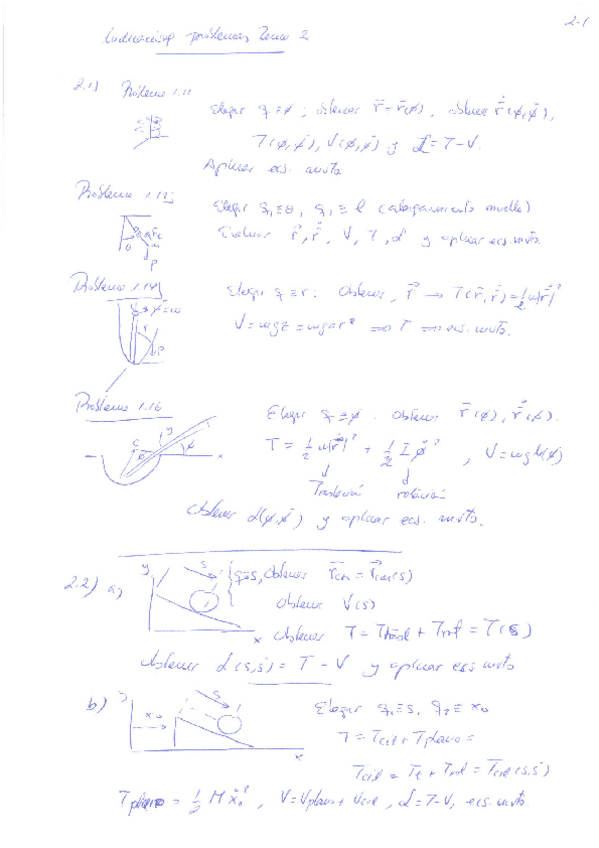 2-1
Indicaciones problemas Tema 2
2.1) Problema 1.11
Elegir q ≡ φ ; obtener r̄ = r̄(φ), obtener ṙ̄(φ,φ̇),
T(φ,φ̇), V(φ,φ̇) y L = T-V.
Aplicar ecs. mvto
Problema
Elegir q₁≡θ, q₂≡ℓ (alargamiento muelle)
θ P
Evaluar r̄, ṙ̄, V, T, L y aplicar ecs. mvto.
Problema 1.14
Elegir q≡r: Obtener, r̄ → T(r̄,ṙ̄)=½m|ṙ̄|²
V=mgz=mgar² ⟹ T ⟹ ecs. mvto.
Problema 1.16
Elegir q≡φ. Obtener r̄(φ), ṙ̄(φ).
C y φ x
T = ½m|ṙ̄|² + ½Iφ̇² , V=mgh(φ)
Traslación rotación
Obtener L(φ,φ̇) y aplicar ecs. mvto.
2.2) a) y S x
q≡s, obtener r̄cm = r̄cm(s)
obtener V(s)
obtener T = Ttrasl + Trot = T(ṡ)
Obtener L(s,ṡ) = T - V y aplicar ecs mvto
b) y x₀ S x
Elegir q₁≡s, q₂≡x₀
T = Tcil + Tplano =
Tcil = Tt + Trot = Tcil(s,ṡ)
Tplano = ½ M ẋ₀² , V=Vplano+Vcil, L=T-V, ecs. mvto.